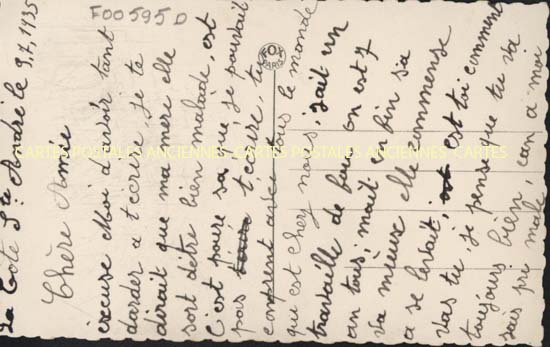 La Cote St André le 9.7.1935
Chère Amie
excuse Moi davoir tant
darder a técrire, je te
dirait que ma mere elle
sort détre bien malade, est
C'est poure sa que je pouvait
pas técrire, tu
comprent avec tous le monde
qui est chez nous, jait un
travaille de fou, on est 7
an tous, mait va bin sa
va mieux elle commense
a se levait, est toi comment
vas tu, je pense que tu va
toujours bien, can a moi
sais pas male,
FOX
PARIS
F00595D
CARTES POSTALES ANCIENNES - CARTES POSTALES ANCIENNES - CARTES POSTALES ANCIENNES